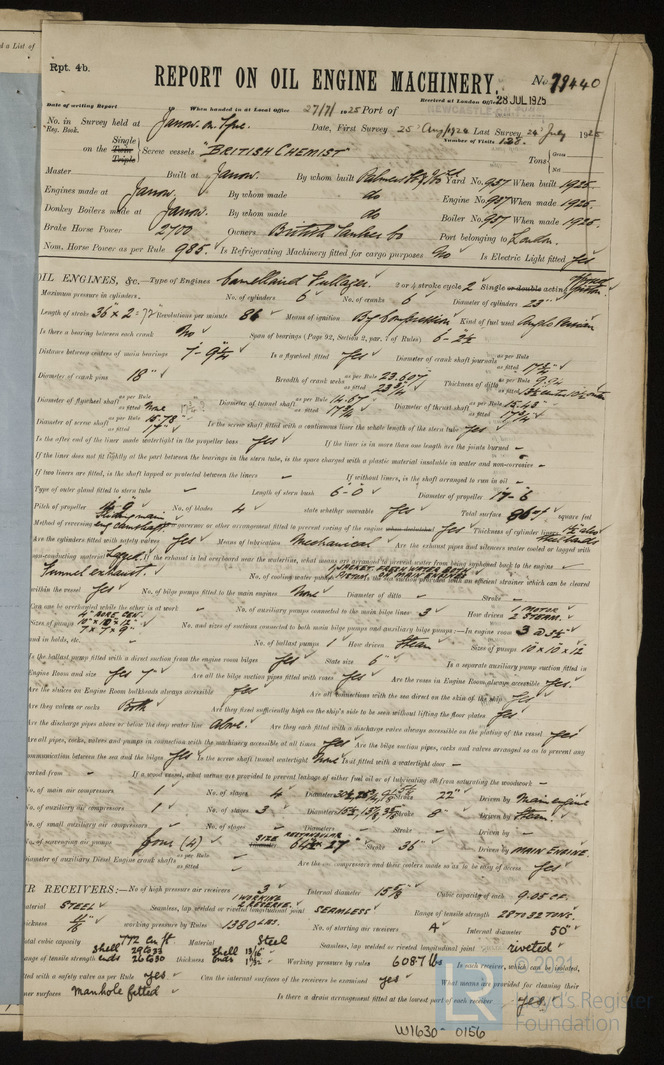 d a List of
Rpt. 4b.
REPORT ON OIL ENGINE MACHINERY.
No. 79440
Received at London Office 28 JUL 1925
Date of writing Report When handed in at Local Office 27/7/1925 Port of NEWCASTLE-ON-
No. in Reg. Book. Survey held at Jarrow on Tyne. Date, First Survey 25 Aug/1924 Last Survey 24 July 1925
Number of Visits 128.
on the Single Twin Triple Screw vessels "BRITISH CHEMIST" Tons Gross Net
Master Built at Jarrow. By whom built Palmers Yard No. 957 When built 1925
Engines made at Jarrow. By whom made do Engine No. 957 When made 1925
Donkey Boilers made at Jarrow. By whom made do Boiler No. 957 When made 1925
Brake Horse Power 2700 Owners British Tanker Co Port belonging to London
Nom. Horse Power as per Rule 985. Is Refrigerating Machinery fitted for cargo purposes No Is Electric Light fitted Yes
OIL ENGINES, &c.—Type of Engines Cammellaird Fullagar. 2 or 4 stroke cycle 2 Single or double acting
Maximum pressure in cylinders No. of cylinders 6 No. of cranks 6 Diameter of cylinders 23"
Length of stroke 36 x 2 = 72 Revolutions per minute 86 Means of ignition By Compression Kind of fuel used Anglo Persian
Is there a bearing between each crank No Span of bearings (Page 92, Section 2, par. 7 of Rules)
Distance between centres of main bearings Is a flywheel fitted Yes Diameter of crank shaft journals as per Rule as fitted
Diameter of crank pins 18" Breadth of crank webs as per Rule as fitted Thickness of ditto as per Rule 9.94 as fitted
Diameter of flywheel shaft as per Rule as fitted None Diameter of tunnel shaft as per Rule 14.67 as fitted Diameter of thrust shaft as per Rule 15.43 as fitted
Diameter of screw shaft as per Rule 15.78 as fitted Is the screw shaft fitted with a continuous liner the whole length of the stern tube Yes
Is the after end of the liner made watertight in the propeller boss Yes If the liner is in more than one length are the joints burned -
If the liner does not fit tightly at the part between the bearings in the stern tube, is the space charged with a plastic material insoluble in water and non-corrosive -
If two liners are fitted, is the shaft lapped or protected between the liners - If without liners, is the shaft arranged to run in oil -
Type of outer gland fitted to stern tube - Length of stern bush 6-0 Diameter of propeller 17-6
Pitch of propeller No. of blades 4 state whether moveable Yes Total surface square feet
Method of reversing governor or other arrangement fitted to prevent racing of the engine when declutched Yes Thickness of cylinder liners
Are the cylinders fitted with safety valves Yes Means of lubrication Mechanical Are the exhaust pipes and silencers water cooled or lagged with
non-conducting material Lagged If the exhaust is led overboard near the waterline, what means are arranged to prevent water from being syphoned back to the engine
Funnel exhaust. No. of cooling water pumps is the sea suction provided with an efficient strainer which can be cleared
within the vessel Yes No. of bilge pumps fitted to the main engines None Diameter of ditto - Stroke -
Can one be overhauled while the other is at work - No. of auxiliary pumps connected to the main bilge lines 3 How driven 1 MOTOR 2 STEAM.
Sizes of pumps 10" x 10" x 12" 7" x 7" x 9" No. and sizes of suctions connected to both main bilge pumps and auxiliary bilge pumps:—In engine room
and in holds, etc. No. of ballast pumps 1 How driven Steam Sizes of pumps 10 x 10 x 12
Is the ballast pump fitted with a direct suction from the engine room bilges Yes State size 6" Is a separate auxiliary pump suction fitted in
Engine Room and size Yes 7" Are all the bilge suction pipes fitted with roses Yes Are the roses in Engine Room always accessible Yes.
Are the sluices on Engine Room bulkheads always accessible Yes Are all connections with the sea direct on the skin of the ship Yes
Are they valves or cocks Both Are they fixed sufficiently high on the ship's side to be seen without lifting the floor plates Yes
Are the discharge pipes above or below the deep water line above. Are they each fitted with a discharge valve always accessible on the plating of the vessel Yes
Are all pipes, cocks, valves and pumps in connection with the machinery accessible at all times Yes Are the bilge suction pipes, cocks and valves arranged so as to prevent any
communication between the sea and the bilges Yes Is the screw shaft tunnel watertight None Is it fitted with a watertight door -
worked from - If a wood vessel, what means are provided to prevent leakage of either fuel oil or of lubricating oil from saturating the woodwork -
No. of main air compressors 1 No. of stages 4 Diameters Stroke 22" Driven by Main engine
No. of auxiliary air compressors 1 No. of stages 3 Diameters Stroke 8" Driven by Steam.
No. of small auxiliary air compressors - No. of stages - Diameters - Stroke - Driven by -
No. of scavenging air pumps Four (4) SIZE RECTANGULAR Stroke 36" Driven by MAIN ENGINE.
Diameter of auxiliary Diesel Engine crank shafts as per Rule as fitted - Are the air compressors and their coolers made so as to be easy of access Yes
AIR RECEIVERS:—No. of high pressure air receivers 3 Internal diameter 15 5/8" Cubic capacity of each 9.05 CF.
1 WORKING 2 RESERVE.
material STEEL Seamless, lap welded or riveted longitudinal joint SEAMLESS Range of tensile strength 28 TO 32 TONS.
thickness 11/16" working pressure by Rules 1380 LBS. No. of starting air receivers 4 Internal diameter 50"
total cubic capacity 772 Cu ft Material Steel Seamless, lap welded or riveted longitudinal joint riveted
Range of tensile strength Shell 29 to 33 ends 26 to 30 thickness Shell 13/16" ends Working pressure by rules 608.7 lbs Is each receiver, which can be isolated,
fitted with a safety valve as per Rule yes Can the internal surfaces of the receivers be examined yes What means are provided for cleaning their
inner surfaces Manhole fitted Is there a drain arrangement fitted at the lowest part of each receiver yes
© 2021
LR
Lloyd's Register
Foundation
W1630-0156